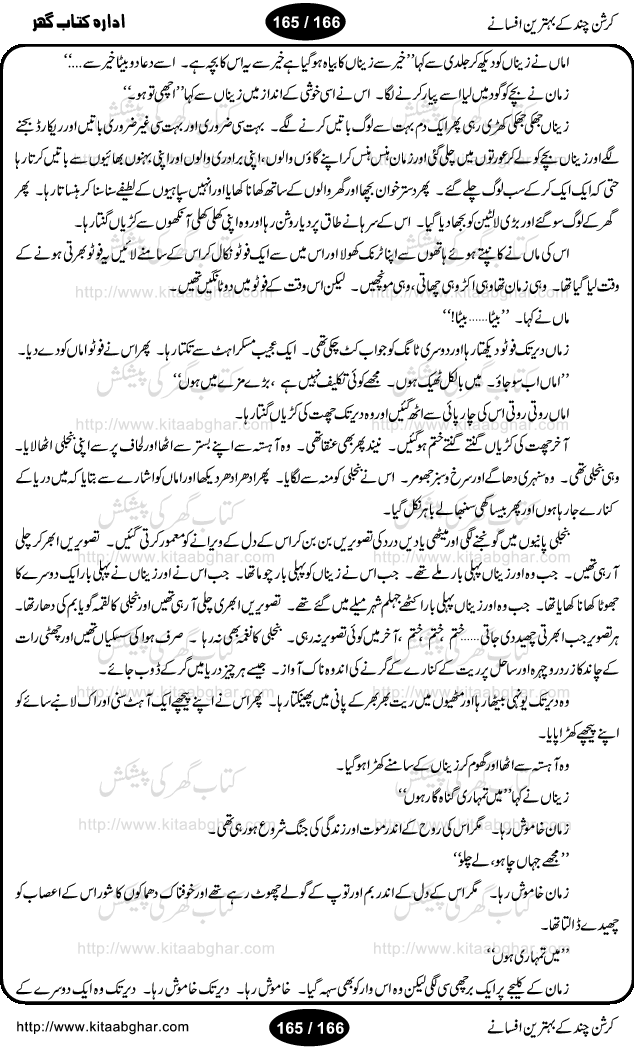 کرشن چندر کے بہترین افسانے
165 / 166
ادارہ کتاب گھر
اماں نے زیناں کو دیکھ کر جلدی سے کہا ’’خیر سے زیناں کا بیاہ ہو گیا ہے خیر سے یہ اس کا بچہ ہے۔ اسے دعا دو بیٹا خیر سے ....‘‘
زمان نے بچے کو گود میں لیا اسے پیار کرنے لگا۔ اس نے اسی خوشی کے انداز میں زیناں سے کہا ’’اچھی تو ہو۔‘‘
زیناں جھکی جھکی کھڑی رہی پھر ایک دم بہت سے لوگ باتیں کرنے لگے۔ بہت سی ضروری اور بہت سی غیر ضروری باتیں اور ریکارڈ بجنے
لگے اور زیناں بچے کو لے کر عورتوں میں چلی گئی اور زمان ہنس ہنس کر اپنے گاؤں والوں، اپنی برادری والوں اور اپنی بہنوں بھائیوں سے باتیں کرتا رہا
حتیٰ کہ ایک ایک کر کے سب لوگ چلے گئے۔ پھر دستر خوان بچھا اور گھر والوں کے ساتھ کھانا کھایا اور انہیں سپاہیوں کے لطیفے سنا سنا کر ہنساتا رہا۔ پھر
گھر کے لوگ سو گئے اور بڑی لالٹین کو بجھا دیا گیا۔ اس کے سرہانے طاق پر دیا روشن رہا اور وہ اپنی کھلی کھلی آنکھوں سے کڑیاں گنتا رہا۔
اس کی ماں نے کانپتے ہوئے ہاتھوں سے اپنا ٹرنک کھولا اور اس میں سے ایک فوٹو نکال کر اس کے سامنے لائیں یہ فوٹو بھرتی ہونے کے
وقت لیا گیا تھا۔ وہی زمان تھا وہی اکڑ وہی چھاتی، وہی مونچھیں۔ لیکن اس وقت کے فوٹو میں دو ٹانگیں تھیں۔
ماں نے کہا۔ ’’بیٹا...... بیٹا!‘‘
زماں دیر تک فوٹو دیکھتا رہا اور دوسری ٹانگ کو جو اب کٹ چکی تھی۔ ایک عجیب مسکراہٹ سے تکتا رہا۔ پھر اس نے فوٹو اماں کو دے دیا۔
’’اماں اب سو جاؤ۔ میں بالکل ٹھیک ہوں۔ مجھے کوئی تکلیف نہیں ہے، بڑے مزے میں ہوں‘‘
اماں روتی روتی اس کی چارپائی سے اٹھ گئیں اور وہ دیر تک چھت کی کڑیاں گنتا رہا۔
آخر چھت کی کڑیاں گنتے گنتے ختم ہو گئیں۔ نیند پھر بھی عنقا تھی۔ وہ آہستہ سے اپنے بستر سے اٹھا اور لحاف پر سے اپنی بنجلی اٹھا لایا۔
وہی بنجلی تھی۔ وہی سنہری دھاگے اور سرخ و سبز جھومر۔ اس نے بنجلی کو منہ سے لگایا۔ پھر ادھر ادھر دیکھا اور اماں کو اشارے سے بتایا کہ میں دریا کے
کنارے جا رہا ہوں اور پھر بیساکھی سنبھالے باہر نکل گیا۔
بنجلی پانیوں میں گونجنے لگی اور میٹھی یادیں درد کی تصویریں بن بن کر اس کے دل کے ویرانے کو معمور کرتی گئیں۔ تصویریں ابھر کر چلی
آ رہی تھیں۔ جب وہ اور زیناں پہلی بار ملے تھے۔ جب اس نے زیناں کو پہلی بار چوما تھا۔ جب اس نے اور زیناں نے پہلی بار ایک دوسرے کا
جھوٹا کھانا کھایا تھا۔ جب وہ اور زیناں پہلی بار اکٹھے جہلم شہر میلے میں گئے تھے۔ تصویریں ابھری چلی آ رہی تھیں اور بنجلی کا لقمہ گویا بم کی دھار تھا۔
ہر تصویر جب ابھرتی چھید دی جاتی ...... ختم، ختم، ختم، آخر میں کوئی تصویر نہ رہی۔ بنجلی کا نغمہ بھی نہ رہا۔ صرف ہوا کی سسکیاں تھیں اور چھٹی رات
کے چاند کا زرد رو چہرہ اور ساحل پر ریت کے کنارے کے گرنے کی اندوہ ناک آواز۔ جیسے ہر چیز دریا میں گر کے ڈوب جائے۔
وہ دیر تک یونہی بیٹھا رہا اور مٹھیوں میں ریت بھر بھر کے پانی میں پھینکتا رہا۔ پھر اس نے اپنے پیچھے ایک آہٹ سنی اور اک لانبے سائے کو
اپنے پیچھے کھڑا پایا۔
وہ آہستہ سے اٹھا اور گھوم کر زیناں کے سامنے کھڑا ہو گیا۔
زیناں نے کہا ’’میں تمہاری گناہ گار ہوں‘‘
زمان خاموش رہا۔ مگر اس کی روح کے اندر موت اور زندگی کی جنگ شروع ہو رہی تھی۔
’’مجھے جہاں چاہو، لے چلو‘‘
زمان خاموش رہا۔ مگر اس کے دل کے اندر بم اور توپ کے گولے چھوٹ رہے تھے اور خوفناک دھماکوں کا شور اس کے اعصاب کو
چھیدے ڈالتا تھا۔
’’میں تمہاری ہوں‘‘
زمان کے کلیجے پر ایک برچھی سی لگی لیکن وہ اس وار کو بھی سہہ گیا۔ خاموش رہا۔ دیر تک خاموش رہا۔ دیر تک وہ ایک دوسرے کے
کرشن چندر کے بہترین افسانے
165 / 166
http://www.kitaabghar.com